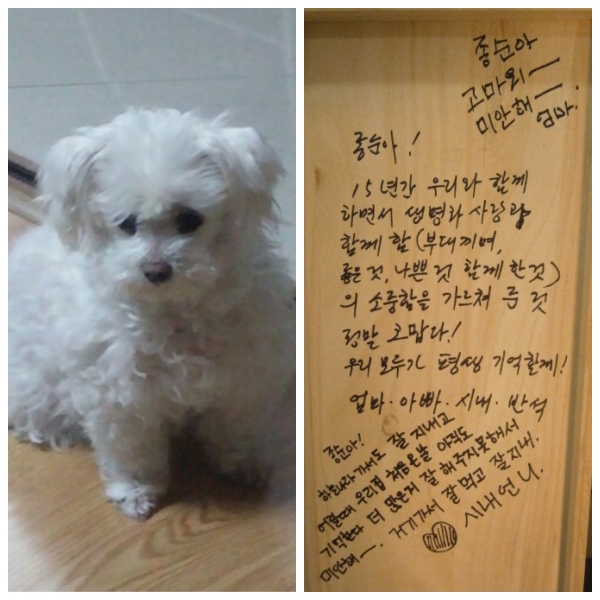 종순아
고마워ㅡ
미안해ㅡ
엄마.
종순아!
15년간 우리와 함께
하면서 생명과 사랑과
함께 함(부대끼며,
좋은 것, 나쁜 것 함께 한 것)
의 소중함을 가르쳐 준 것
정말 고맙다!
우리 모두가 평생 기억할게!
엄마·아빠·시내·반석
종순아!
하늘나라 가서도 잘 지내고
어릴때 우리집 처음온날 아직도
기억한다 더 많은게 잘 해주지 못해서
미안해ㅡ. 거기가서 잘 먹고 잘 지내.
시내언니.